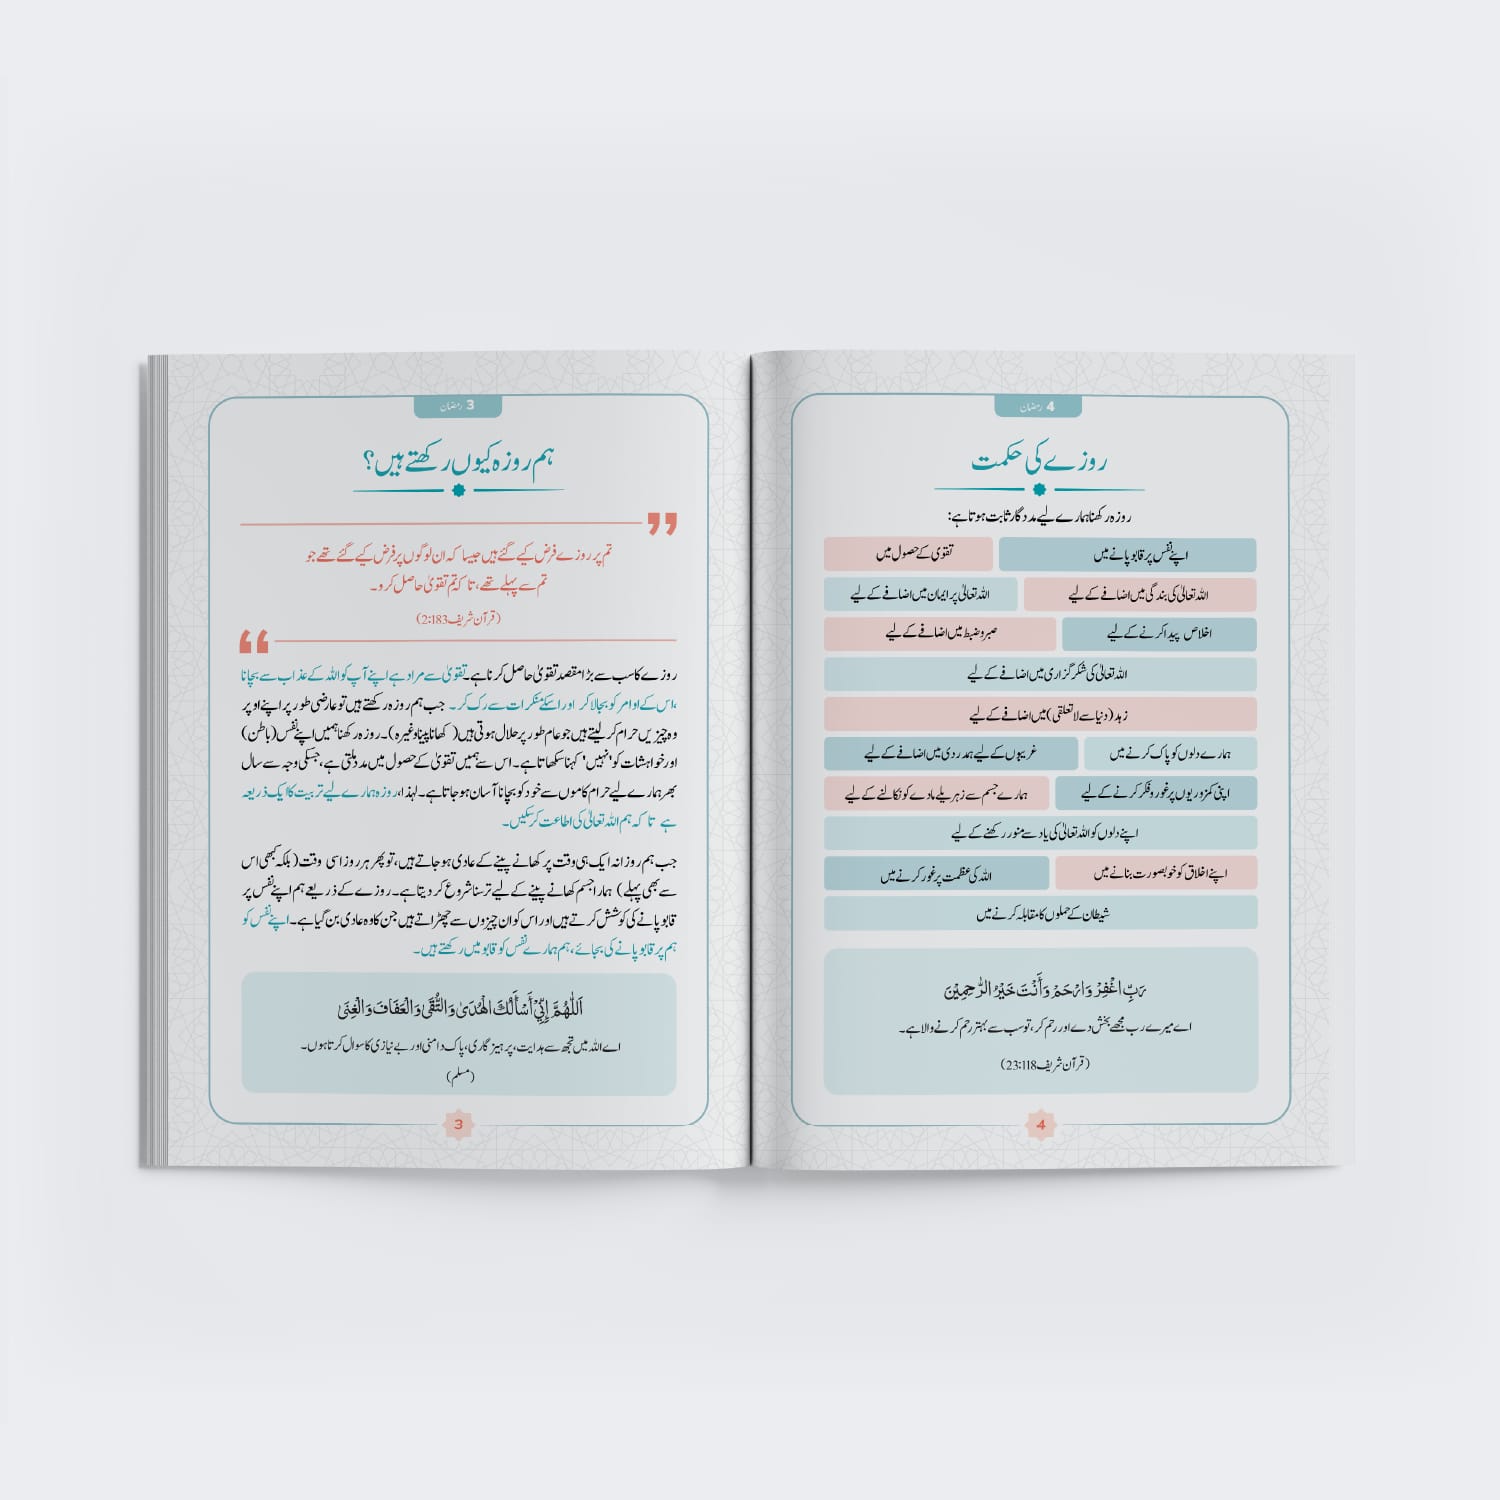 3 رمضان
ہم روزہ کیوں رکھتے ہیں؟
تم پر روزے فرض کیے گئے ہیں جیسا کہ ان لوگوں پر فرض کیے گئے تھے جو
تم سے پہلے تھے، تاکہ تم تقویٰ حاصل کرو۔
(قرآن شریف 2:183)
روزے کا سب سے بڑا مقصد تقویٰ حاصل کرنا ہے۔ تقویٰ سے مراد ہے اپنے آپ کو اللہ کے عذاب سے بچانا
،اس کے اوامر کو بجا لا کر اور اسکے منکرات سے رک کر۔ جب ہم روزہ رکھتے ہیں تو عارضی طور پر اپنے اوپر
وہ چیزیں حرام کر لیتے ہیں جو عام طور پر حلال ہوتی ہیں (کھانا پینا وغیرہ)۔ روزہ رکھنا ہمیں اپنے نفس (باطن)
اور خواہشات کو 'نہیں' کہنا سکھاتا ہے۔ اس سے ہمیں تقویٰ کے حصول میں مدد ملتی ہے، جسکی وجہ سے سال
بھر ہمارے لیے حرام کاموں سے خود کو بچانا آسان ہو جاتا ہے۔ لہذا، روزہ ہمارے لیے تربیت کا ایک ذریعہ
ہے تاکہ ہم اللہ تعالیٰ کی اطاعت کر سکیں۔
جب ہم روزانہ ایک ہی وقت پر کھانے پینے کے عادی ہو جاتے ہیں، تو پھر ہر روز اسی وقت (بلکہ کبھی اس
سے بھی پہلے) ہمارا جسم کھانے پینے کے لیے ترسنا شروع کر دیتا ہے۔ روزے کے ذریعے ہم اپنے نفس پر
قابو پانے کی کوشش کرتے ہیں اور اس کو ان چیزوں سے چھڑاتے ہیں جن کا وہ عادی بن گیا ہے۔ اپنے نفس کو
ہم پر قابو پانے کی بجائے، ہم ہمارے نفس کو قابو میں رکھتے ہیں۔
اَللّٰهُمَّ إِنِّيْ أَسْأَلُكَ الْهُدَىٰ وَالتُّقَىٰ وَالْعَفَافَ وَالْغِنَىٰ
اے اللہ میں تجھ سے ہدایت، پرہیز گاری، پاک دامنی اور بے نیازی کا سوال کرتا ہوں۔
(مسلم)
3
4 رمضان
روزے کی حکمت
روزہ رکھنا ہمارے لیے مددگار ثابت ہوتا ہے:
اپنے نفس پر قابو پانے میں
تقویٰ کے حصول میں
اللہ تعالیٰ کی بندگی میں اضافے کے لیے
اللہ تعالیٰ پر ایمان میں اضافے کے لیے
اخلاص پیدا کرنے کے لیے
صبر و ضبط میں اضافے کے لیے
اللہ تعالیٰ کی شکر گزاری میں اضافے کے لیے
زہد (دنیا سے لا تعلقی) میں اضافے کے لیے
ہمارے دلوں کو پاک کرنے میں
غریبوں کے لیے ہمدردی میں اضافے کے لیے
اپنی کمزوریوں پر غور و فکر کرنے کے لیے
ہمارے جسم سے زہریلے مادے کو نکالنے کے لیے
اپنے دلوں کو اللہ تعالیٰ کی یاد سے منور رکھنے کے لیے
اپنے اخلاق کو خوبصورت بنانے میں
اللہ کی عظمت پر غور کرنے میں
شیطان کے حملوں کا مقابلہ کرنے میں
رَبِّ اغْفِرْ وَارْحَمْ وَأَنْتَ خَيْرُ الرَّحِمِيْنَ
اے میرے رب مجھے بخش دے اور رحم کر، تو سب سے بہتر رحم کرنے والا ہے۔
(قرآن شریف 23:118)
4